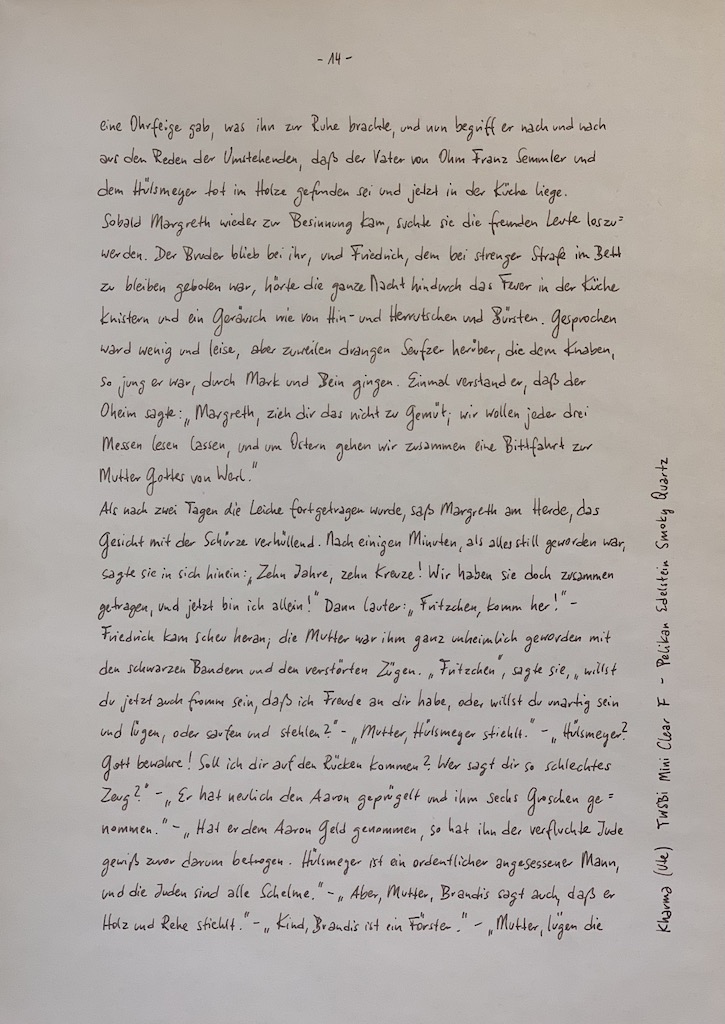 - 14 -
eine Ohrfeige gab, was ihn zur Ruhe brachte, und nun begriff er nach und nach
aus den Reden der Umstehenden, daß der Vater von Ohm Franz Semmler und
dem Hülsmeyer tot im Holze gefunden sei und jetzt in der Küche liege.
Sobald Margreth wieder zur Besinnung kam, suchte sie die fremden Leute loszu=
werden. Der Bruder blieb bei ihr, und Friedrich, dem bei strenger Strafe im Bett
zu bleiben geboten war, hörte die ganze Nacht hindurch das Feuer in der Küche
knistern und ein Geräusch wie von Hin- und Herrutschen und Bürsten. Gesprochen
ward wenig und leise, aber zuweilen drangen Seufzer herüber, die dem Knaben,
so jung er war, durch Mark und Bein gingen. Einmal verstand er, daß der
Oheim sagte: „Margreth, zieh dir das nicht zu Gemüt; wir wollen jeder drei
Messen lesen lassen, und um Ostern gehen wir zusammen eine Bittfahrt zur
Mutter Gottes von Werl."
Als nach zwei Tagen die Leiche fortgetragen wurde, saß Margreth am Herde, das
Gesicht mit der Schürze verhüllend. Nach einigen Minuten, als alles still geworden war,
sagte sie in sich hinein: „Zehn Jahre, zehn Kreuze! Wir haben sie doch zusammen
getragen, und jetzt bin ich allein!" Dann lauter: „Fritzchen, komm her!" -
Friedrich kam scheu heran; die Mutter war ihm ganz unheimlich geworden mit
den schwarzen Bändern und den verstörten Zügen. „Fritzchen", sagte sie, „willst
du jetzt auch fromm sein, daß ich Freude an dir habe, oder willst du unartig sein
und lügen, oder saufen und stehlen?" - „Mutter, Hülsmeyer stiehlt." - „Hülsmeyer?
Gott bewahre! Soll ich dir auf den Rücken kommen? Wer sagt dir so schlechtes
Zeug?" - „Er hat neulich den Aaron geprügelt und ihm sechs Groschen ge=
nommen." - „Hat er dem Aaron Geld genommen, so hat ihn der verfluchte Jude
gewiß zuvor darum betrogen. Hülsmeyer ist ein ordentlicher angesessener Mann,
und die Juden sind alle Schelme." - „Aber, Mutter, Brandis sagt auch, daß er
Holz und Rehe stiehlt." - „Kind, Brandis ist ein Förster." - „Mutter, lügen die
Kharma (Ute) TWSBI Mini Clear F - Pelikan Edelstein Smoky Quartz